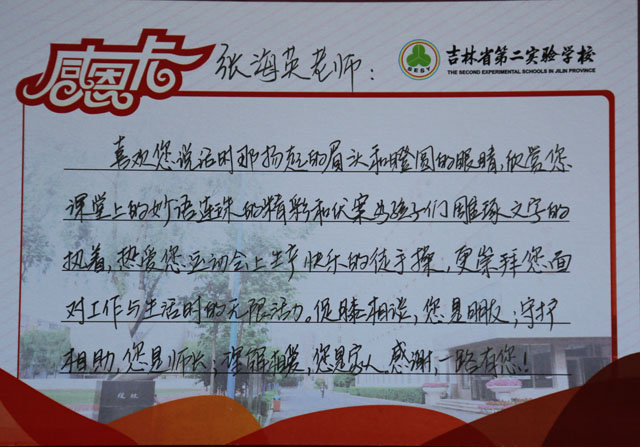 感恩卡
张海英老师：
吉林省第二实验学校
THE SECOND EXPERIMENTAL SCHOOLS IN JILIN PROVINCE
SEST
喜欢您说话时那扬起的眉头和瞪圆的眼睛，欣赏您
课堂上的妙语连珠的精彩和伏案为孩子们雕琢文字的
执着，热爱您运动会上生产快乐的徒手操，更崇拜您面
对工作与生活时的无限活力。促膝相谈，您是朋友；守护
相助，您是师长；理解相爱，您是家人。感谢，一路有您！